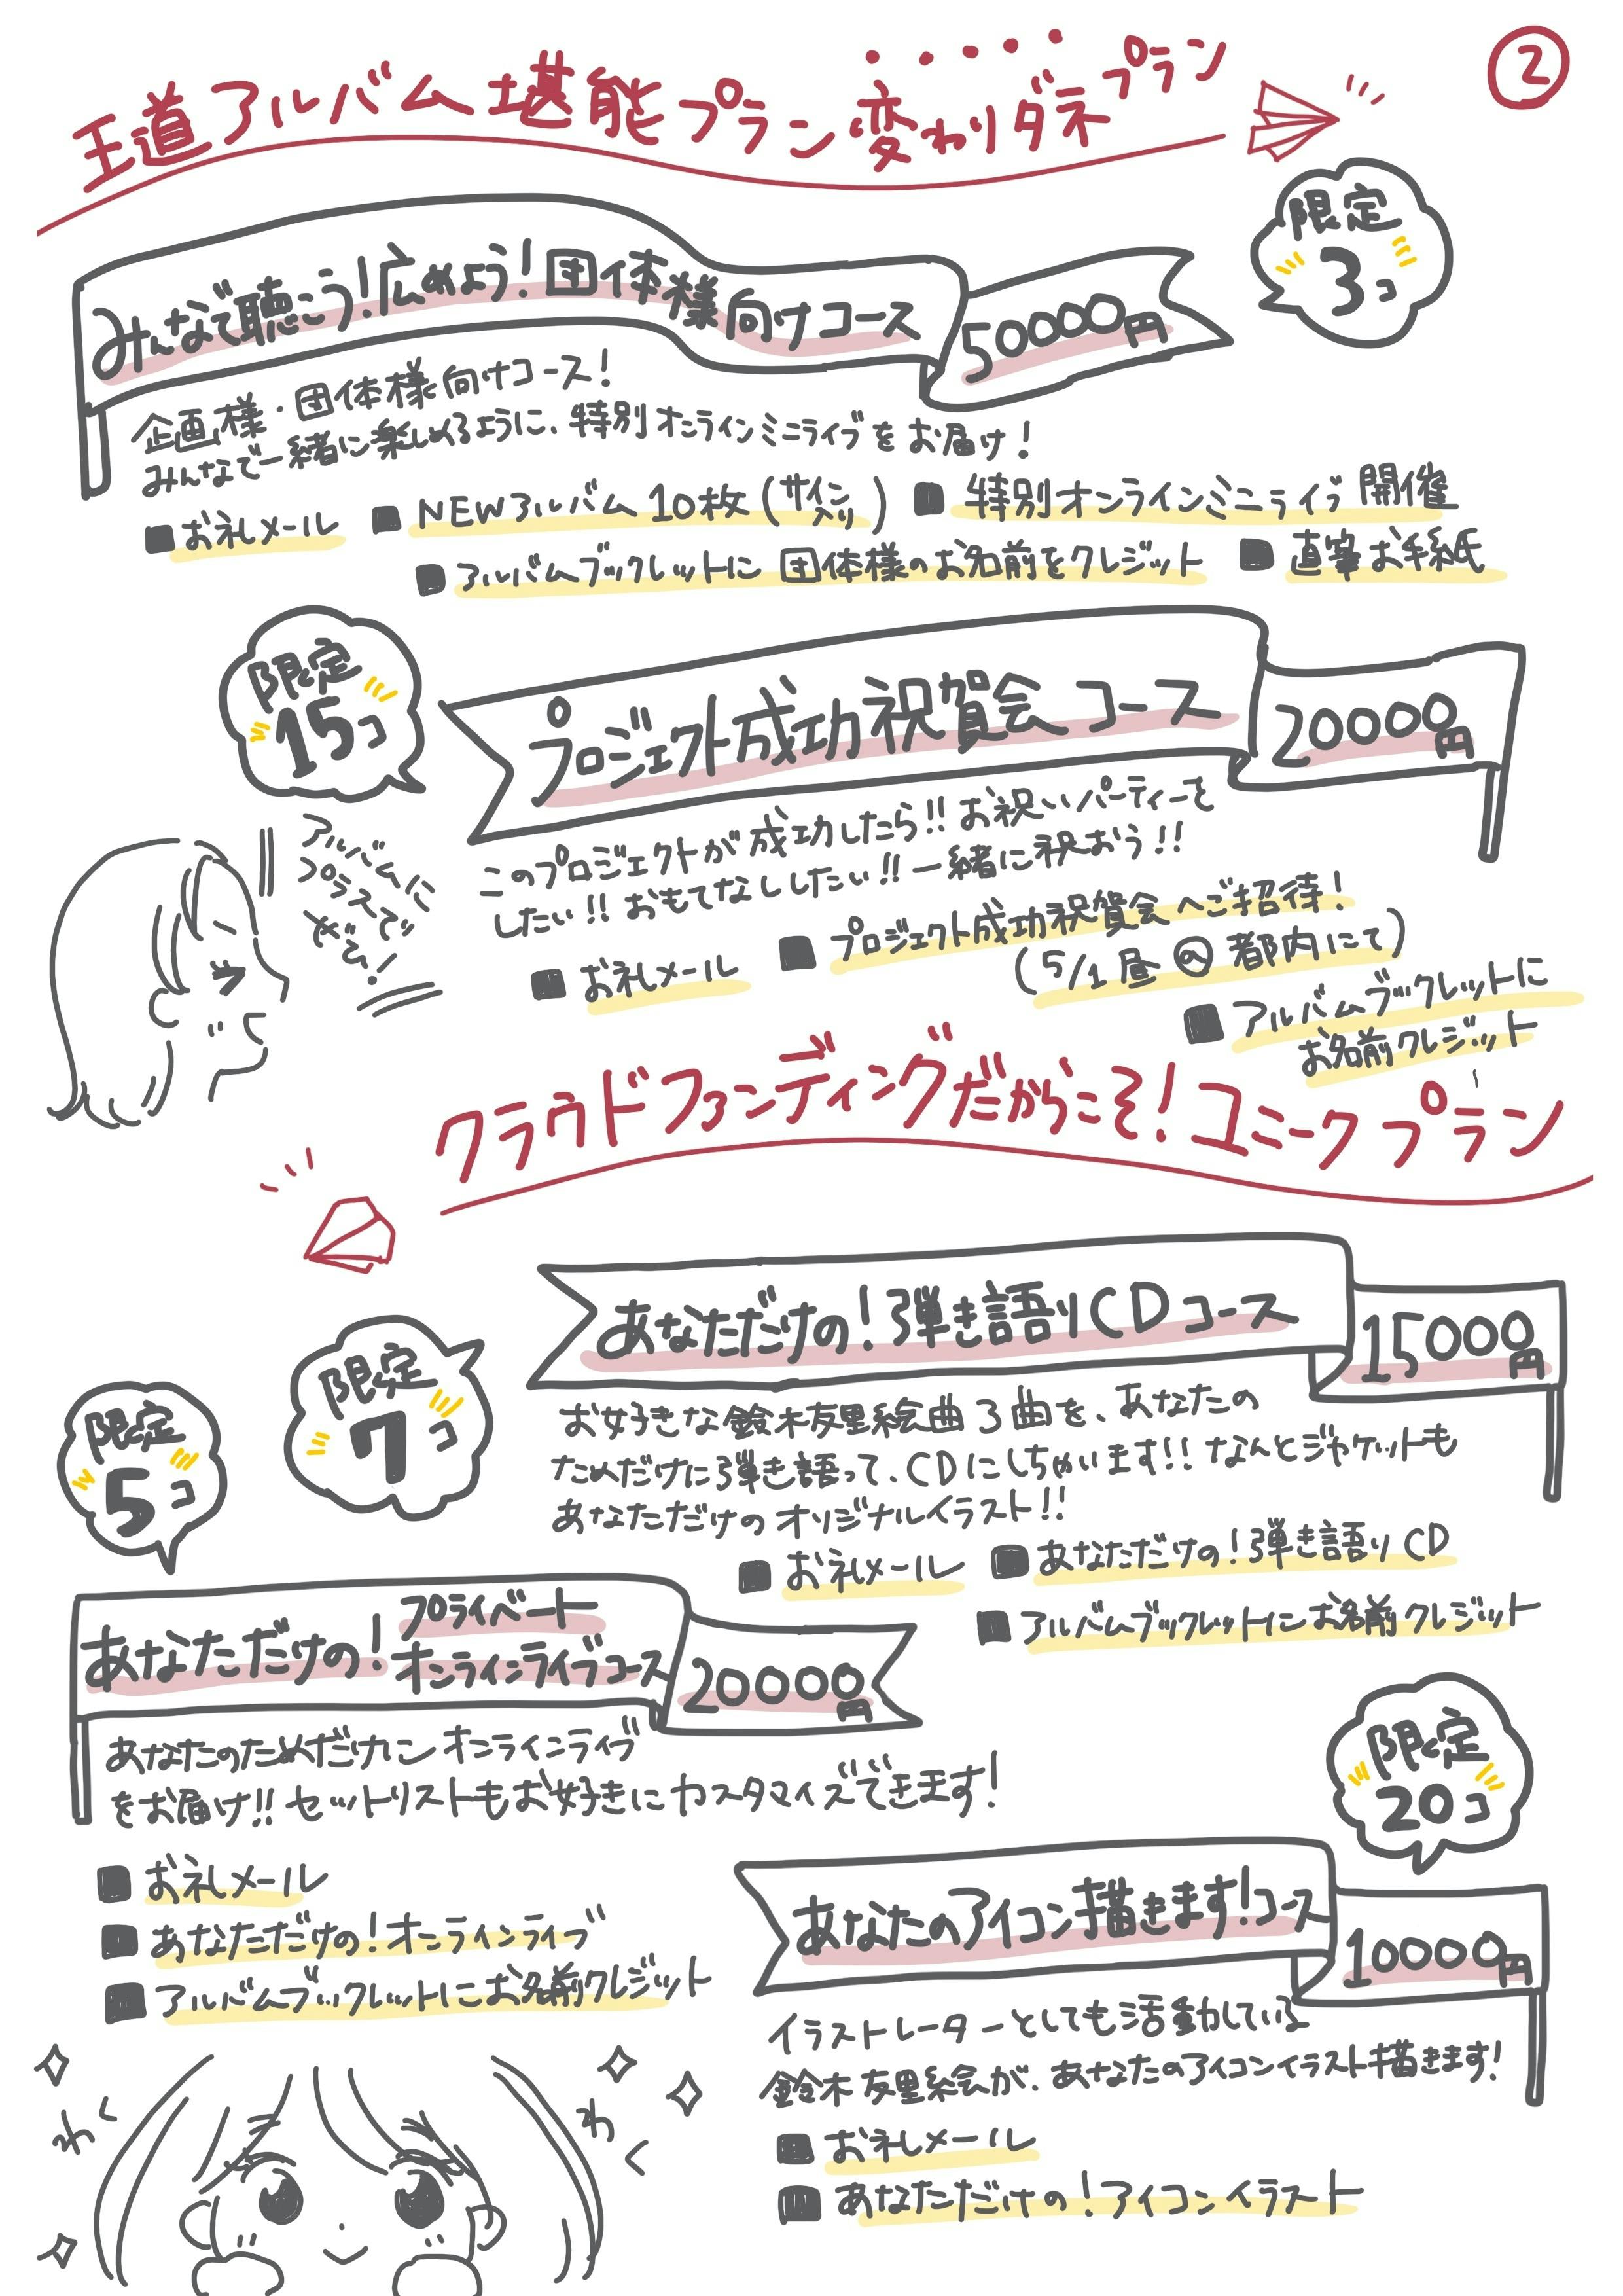 ②
王道アルバム堪能プラン変わりダネプラン
限定
3コ
みんなで聴こう!広めよう!団体様向けコース
50000円
企画様・団体様向けコース!
みんなで一緒に楽しめるように、特別オンラインミニライブをお届け!
■お礼メール ■NEWアルバム10枚(サイン入り) ■特別オンラインミニライブ開催
■アルバムブックレットに団体様のお名前をクレジット ■直筆お手紙
限定
15コ
プロジェクト成功祝賀会コース
20000円
このプロジェクトが成功したら!!お祝いパーティーを
したい!!おもてなししたい!!一緒に祝おう!!
■お礼メール ■プロジェクト成功祝賀会へご招待!
(5/1昼の都内にて)
■アルバムブックレットに
お名前クレジット
アルバムに
プラスで
ぜひ!
クラウドファンディングだからこそ!ユニークプラン
限定
7コ
あなただけの!弾き語りCDコース
15000円
お好きな鈴木友里絵曲3曲を、あなたの
ためだけに弾き語って、CDにしちゃいます!!なんとジャケットも
あなただけのオリジナルイラスト!!
■お礼メール ■あなただけの!弾き語りCD
■アルバムブックレットにお名前クレジット
限定
5コ
あなただけの!プライベート
オンラインライブコース
20000円
あなたのためだけにオンラインライブ
をお届け!!セットリストもお好きにカスタマイズできます!
■お礼メール
■あなただけの!オンラインライブ
■アルバムブックレットにお名前クレジット
限定
20コ
あなたのアイコン描きます!コース
10000円
イラストレーターとしても活動している
鈴木友里絵が、あなたのアイコンイラスト描きます!
■お礼メール
■あなただけの!アイコンイラスト
わく
わく